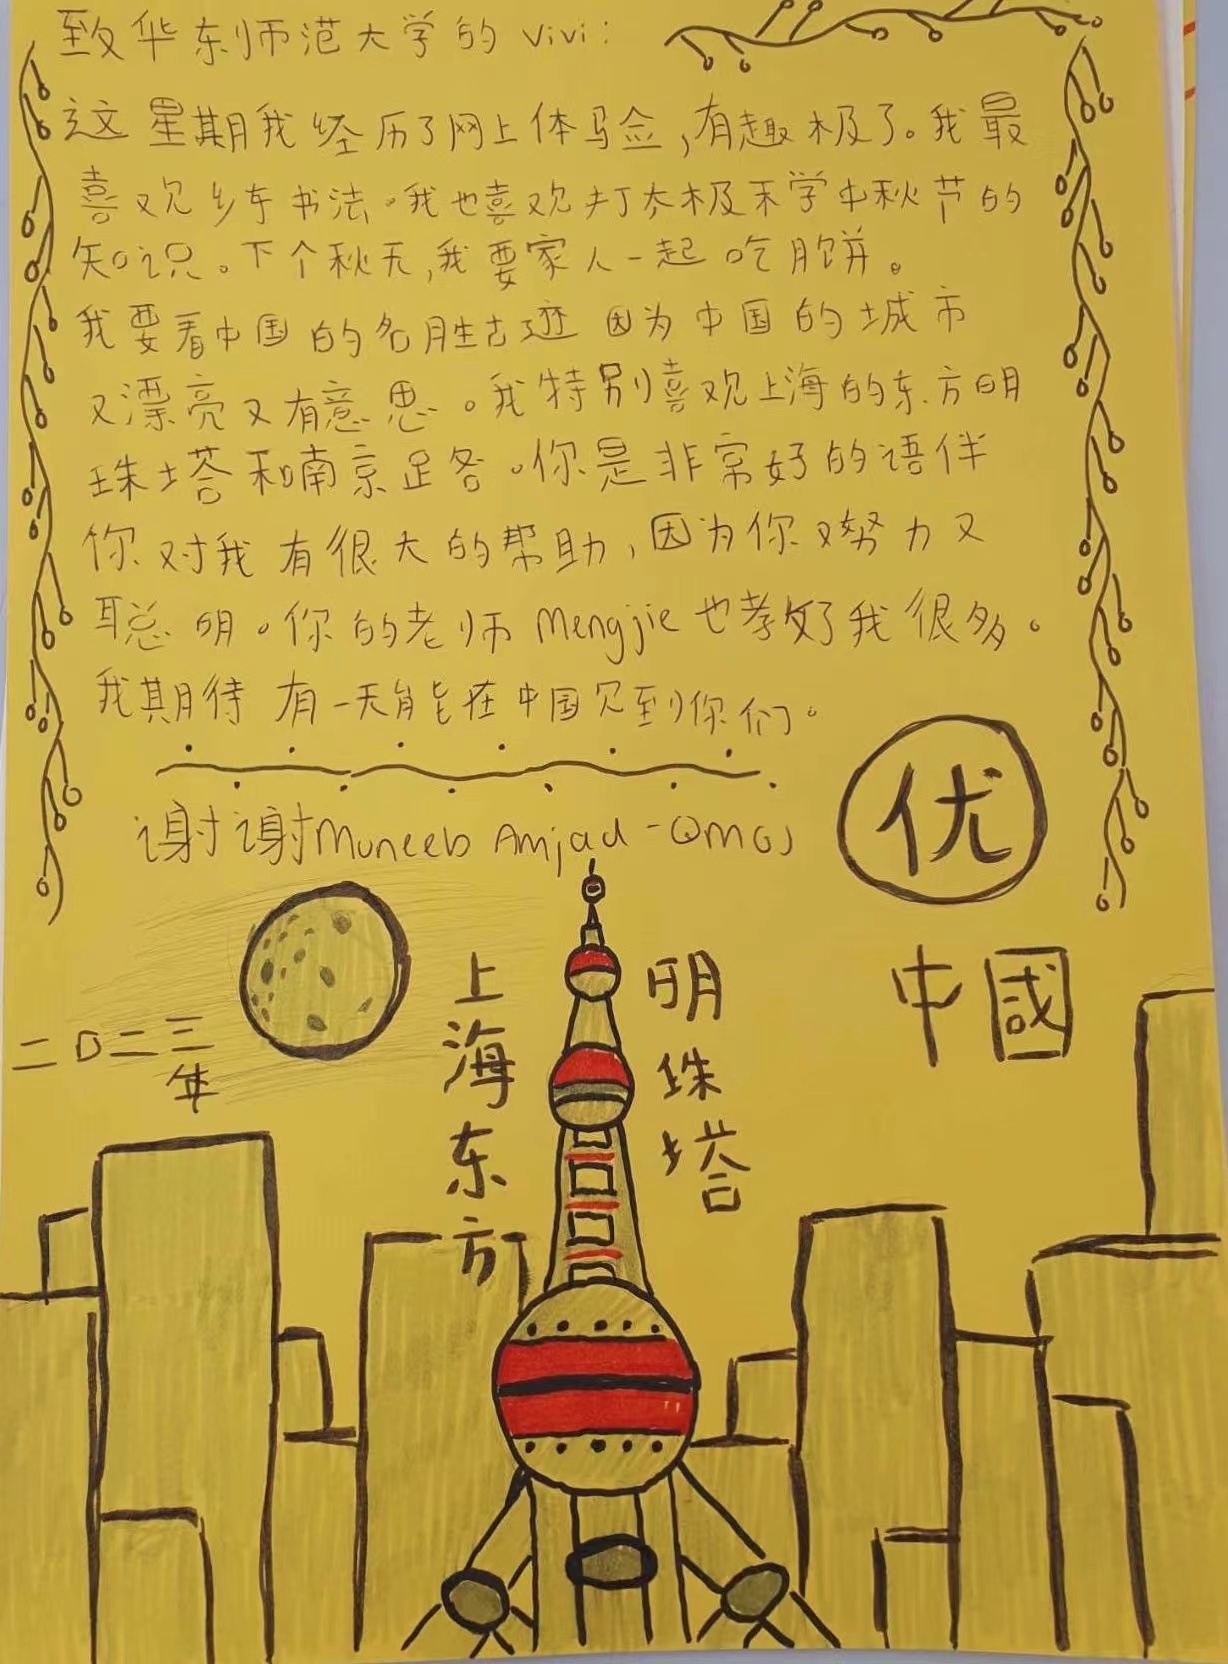 致华东师范大学的 vivi:
这星期我经历了网上体验,有趣极了。我最
喜欢练书法。我也喜欢打太极和学中秋节的
知识。下个秋天,我要家人一起吃月饼。
我要看中国的名胜古迹因为中国的城市
又漂亮又有意思。我特别喜欢上海的东方明
珠塔和南京路。你是非常好的语伴
你对我有很大的帮助,因为你又努力又
聪明。你的老师 Mengjie 也教了我很多。
我期待有一天能在中国见到你们。
谢谢 Muneeb Amjad
优
上海东方
明珠塔
中國
二〇二三
年